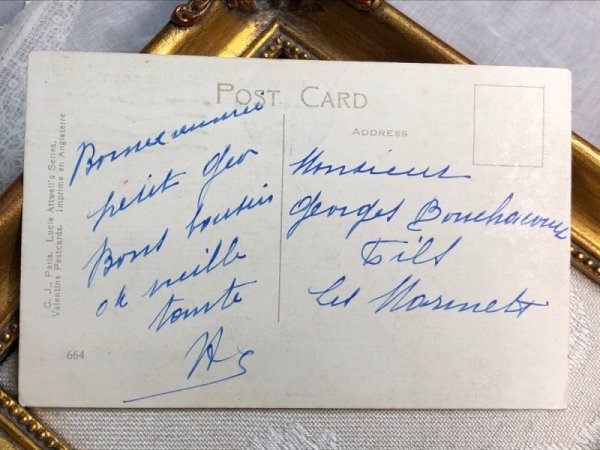 POST CARD
ADDRESS
Bonne année
petit Geo
Bons baisers
vieille
tante
Monsieur
Georges Bouchacourt
Fils
Les
G. J., Paris. Lucie Attwell's Series,
Valentine Postcards. Imprimé en Angleterre
664